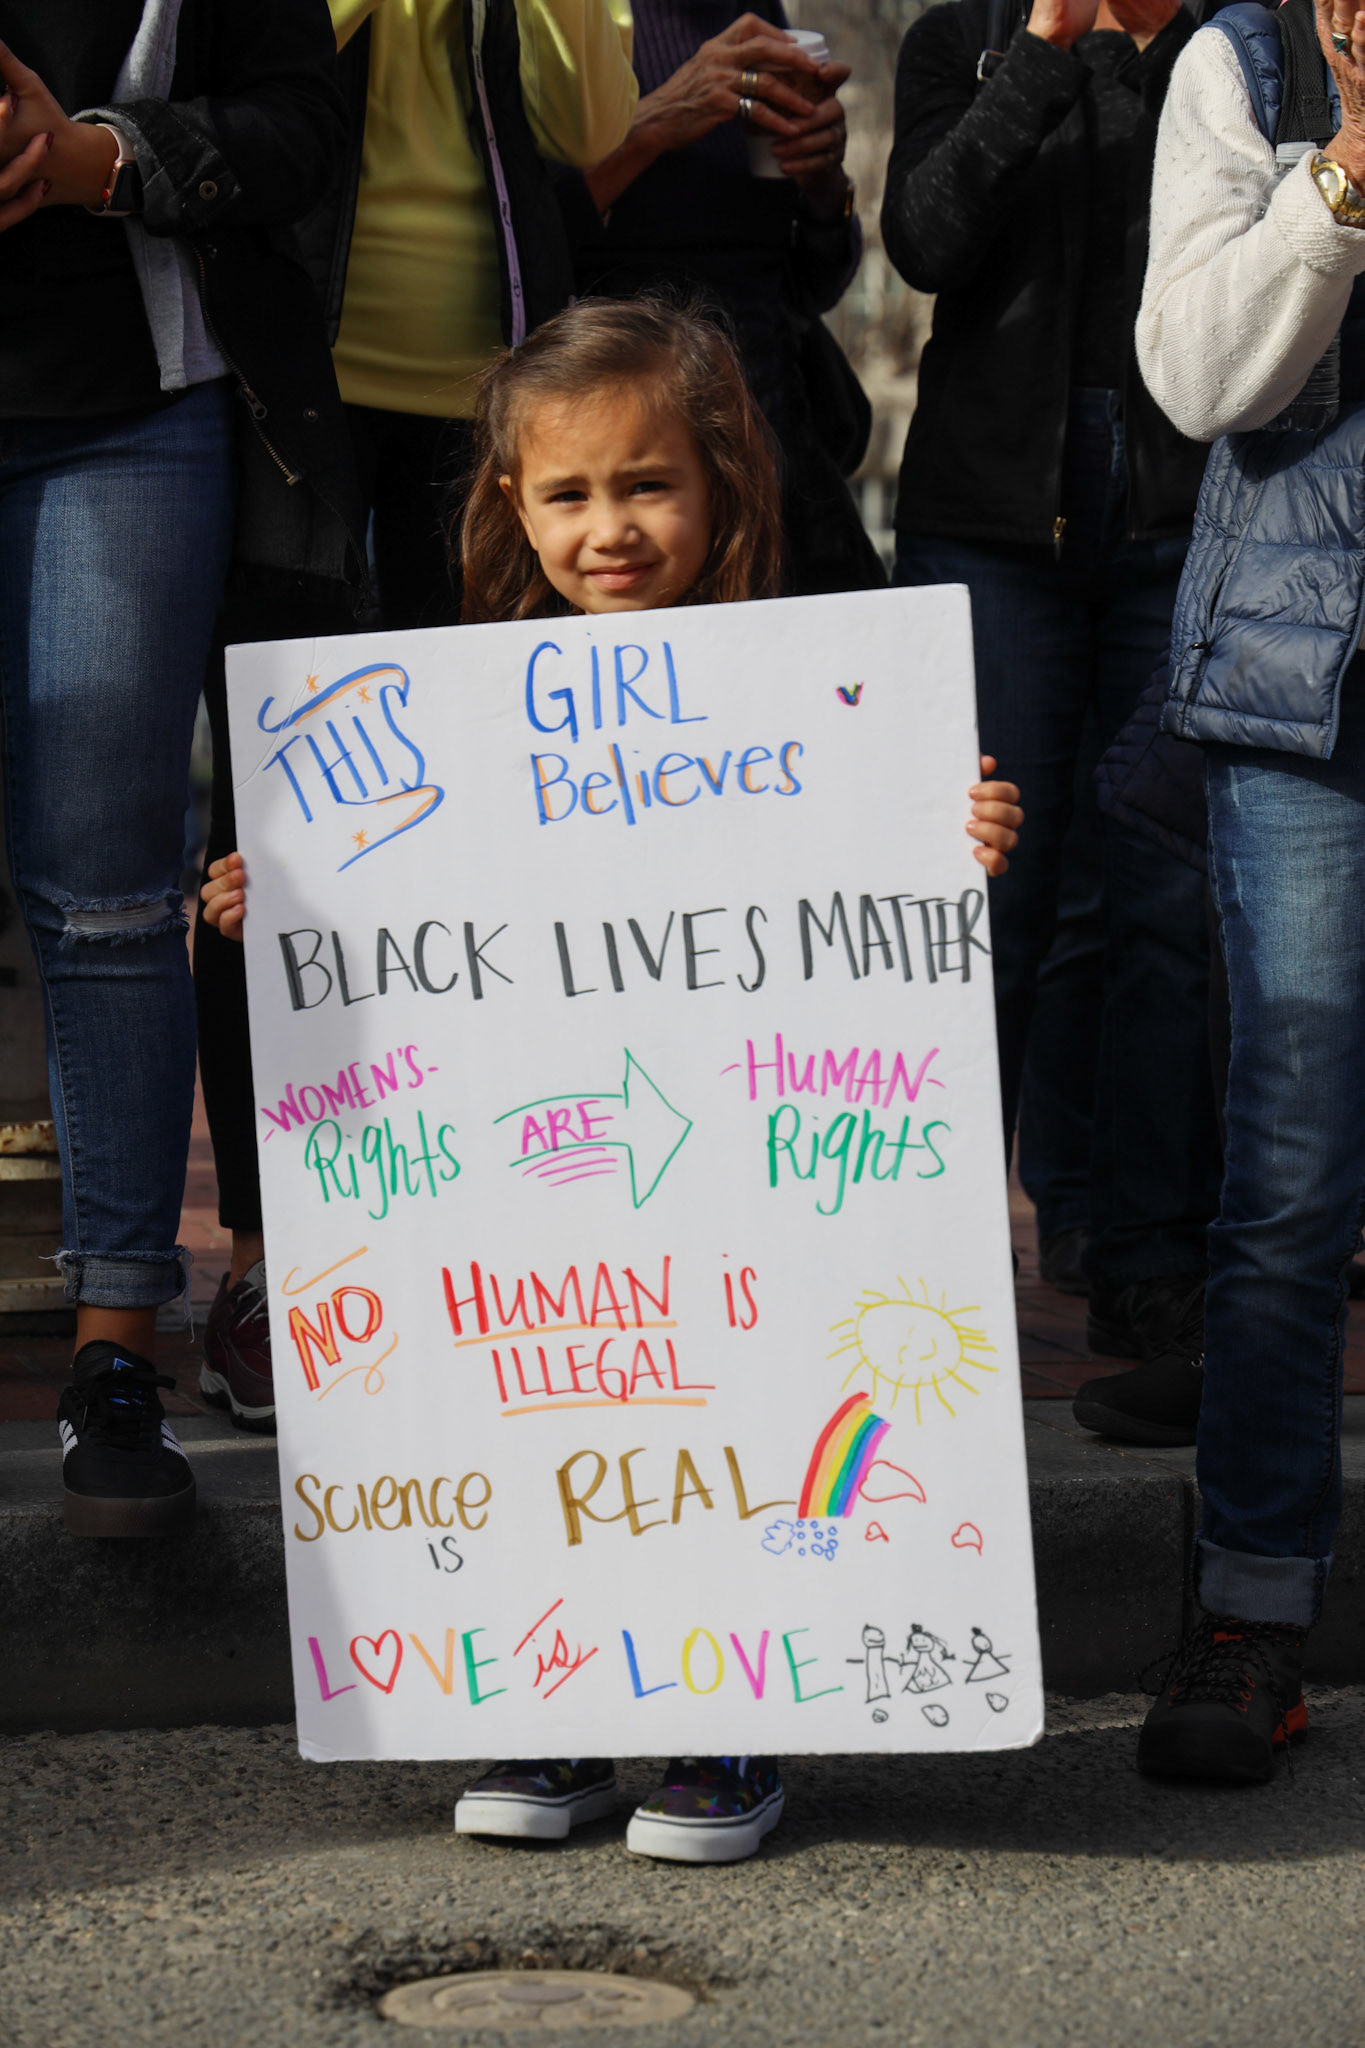 THIS GIRL
Believes
BLACK LIVES MATTER
WOMEN'S- ARE -HUMAN-
Rights Rights
NO HUMAN is
ILLEGAL
Science is REAL
LOVE is LOVE